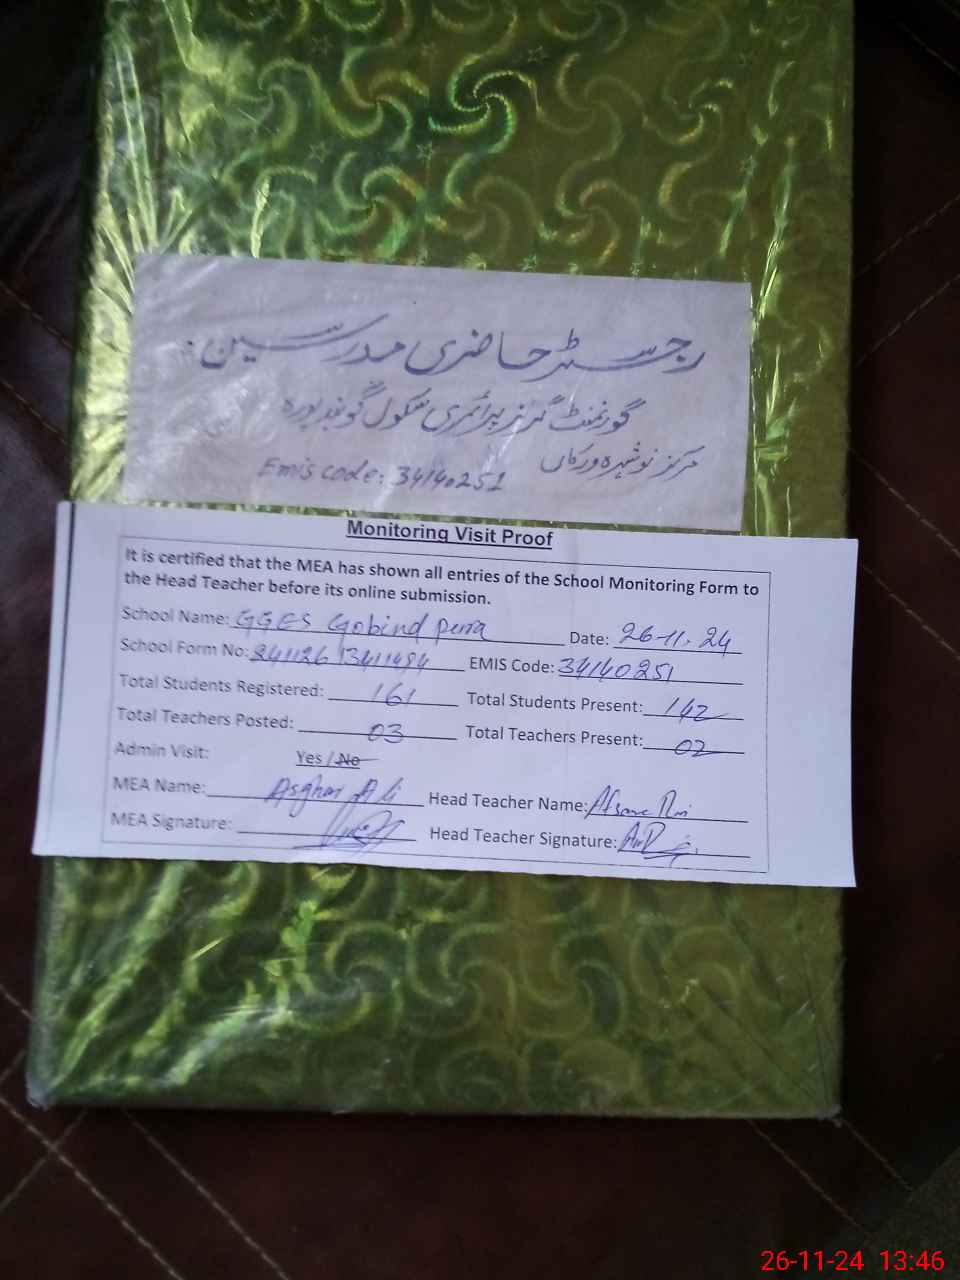 رجسٹر حاضری مدرسین
گورنمنٹ گرلز پرائمری سکول گوبند پورہ
مرکز نوشہرہ ورکاں
Emis code: 34140251
Monitoring Visit Proof
It is certified that the MEA has shown all entries of the School Monitoring Form to
the Head Teacher before its online submission.
School Name: GGES Gobind Date: 26-11-24
School Form No: EMIS Code: 34140251
Total Students Registered: 161 Total Students Present: 142
Total Teachers Posted: 03 Total Teachers Present: 02
Admin Visit: Yes / No
MEA Name: Asghar Ali Head Teacher Name:
MEA Signature: Head Teacher Signature:
26-11-24 13:46